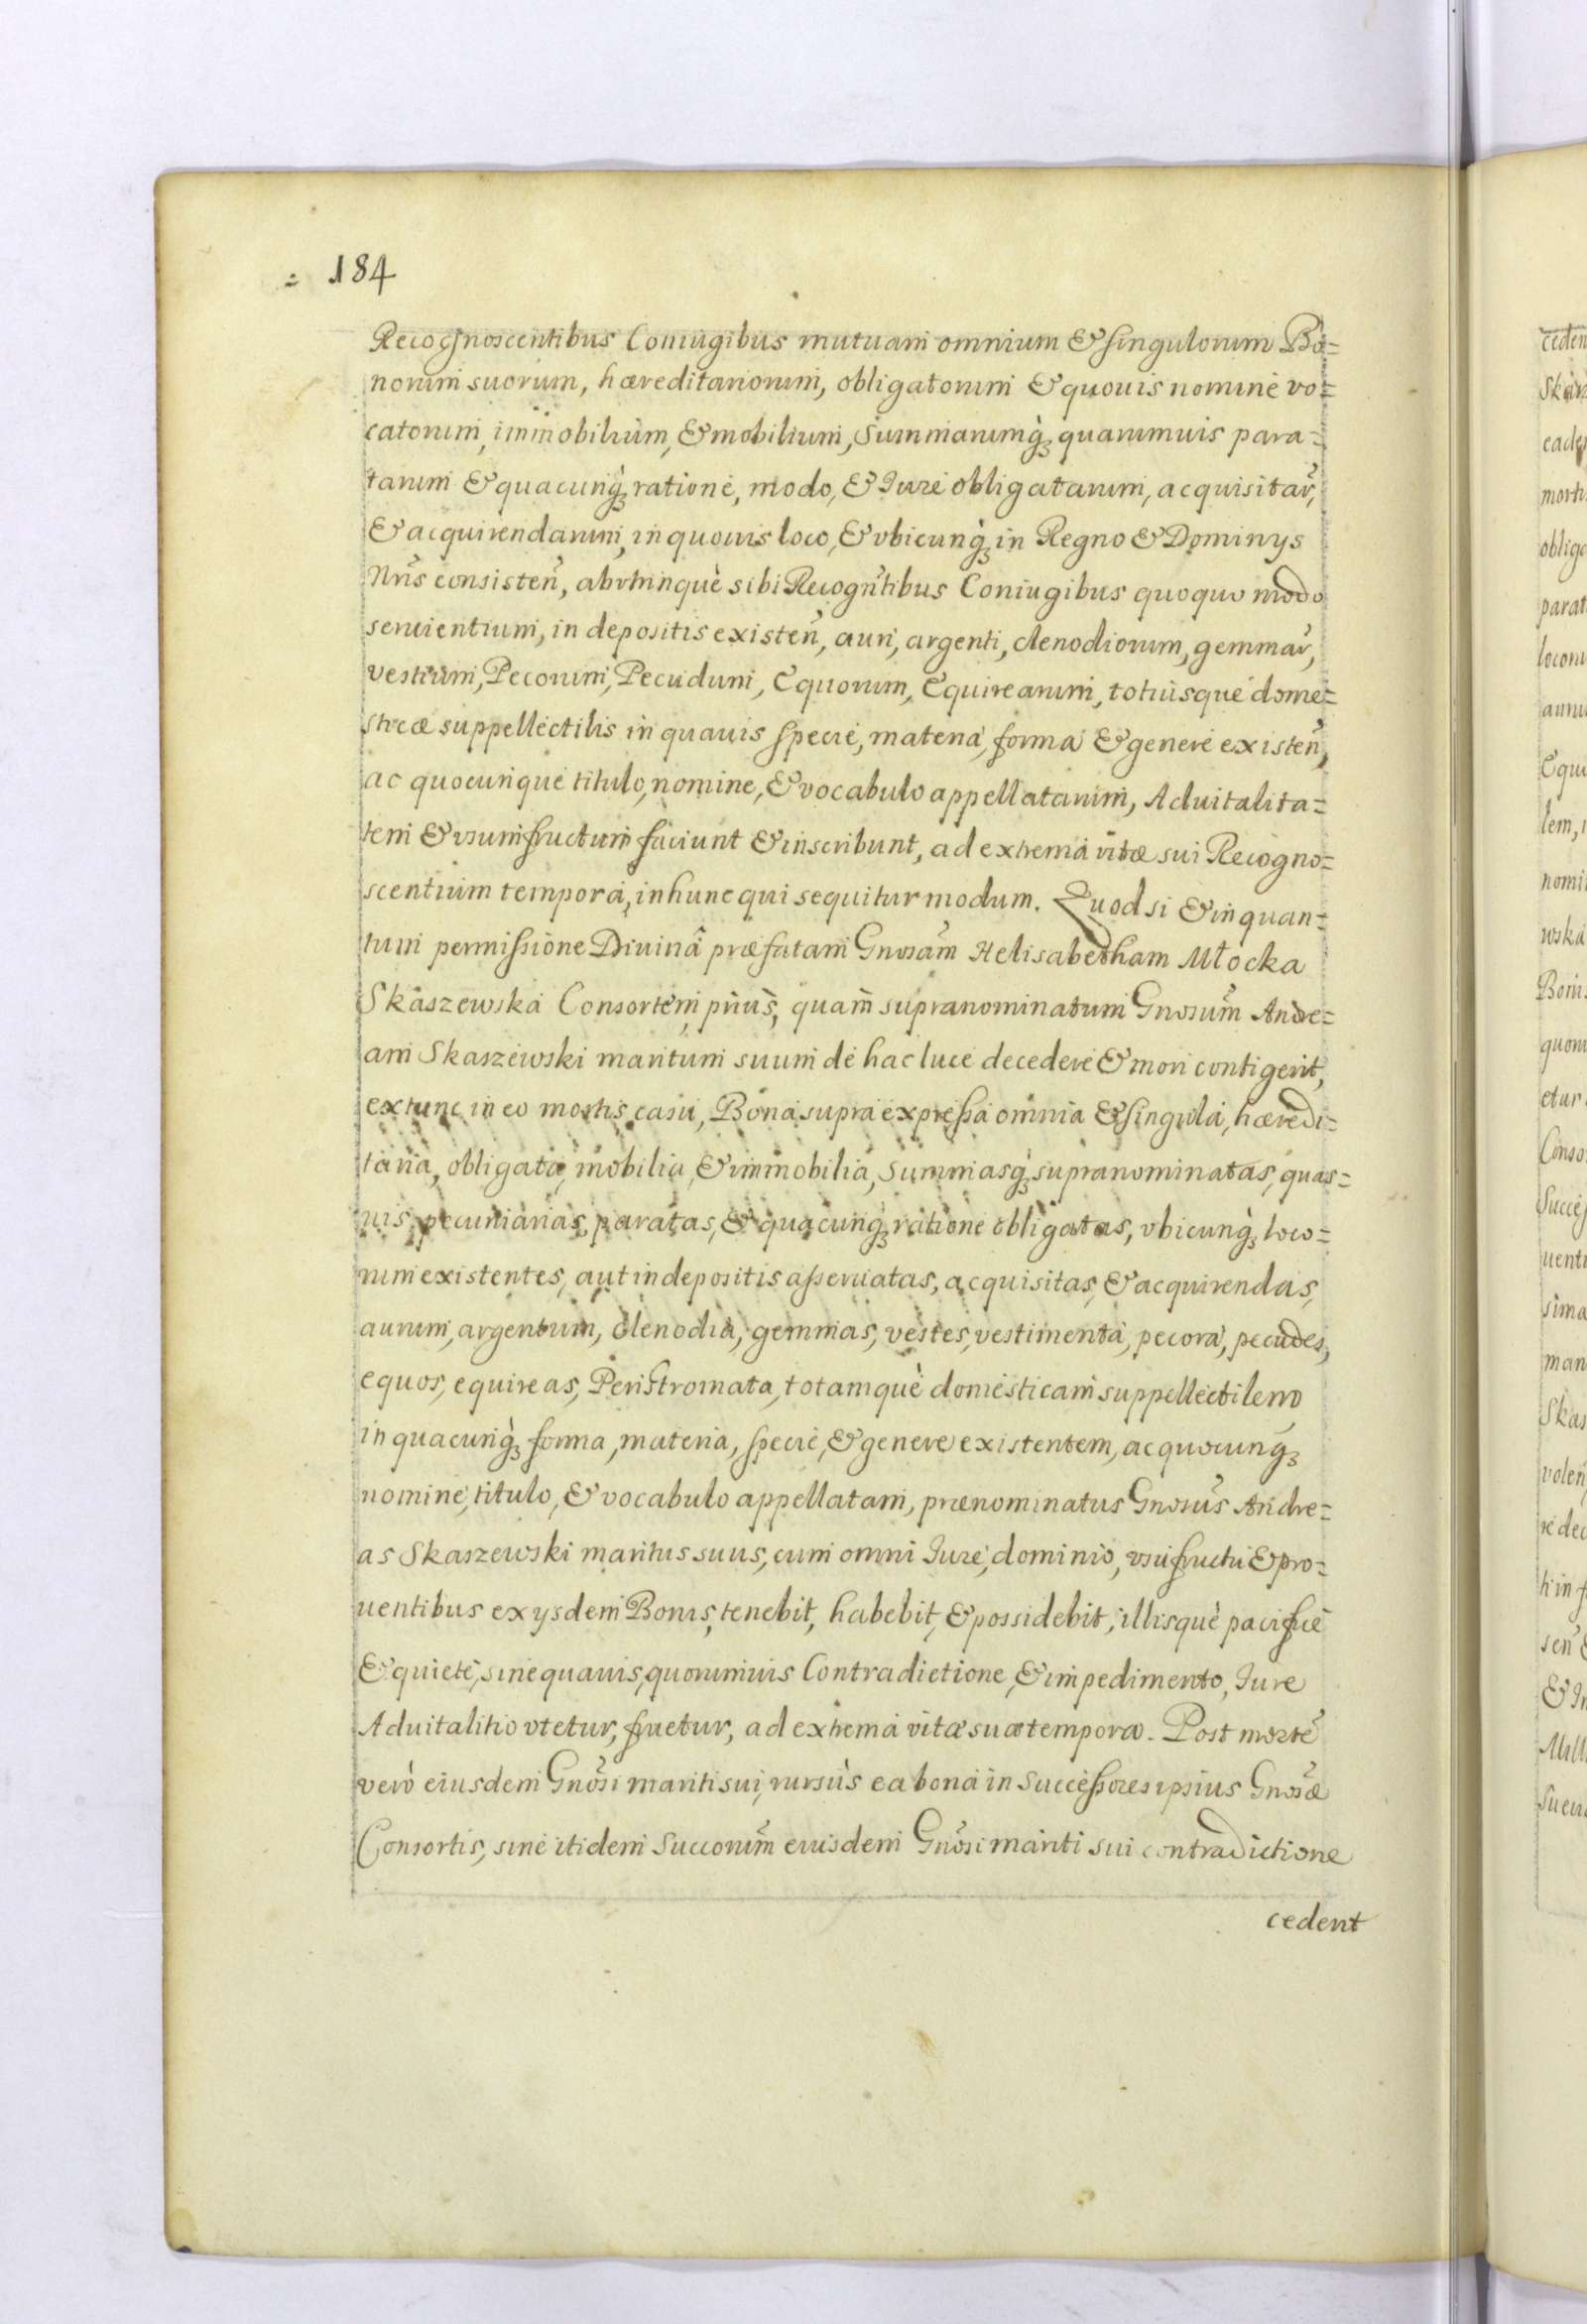 184
Recognoscentibus Coniugibus mutuam omnium & singulorum Bo=
norum suorum, hæreditariorum, obligatorum & quouis nomine vo=
catorum, immobilium, & mobilium, Summarumq; quarumuis para=
tarum & quacunq; ratione, modo, & Iure obligatarum, acquisitar̃,
& acquirendarum, in quouis loco, & vbicunq; in Regno & Dominys
Nr̃is consisteñ, abvtrinquè sibi Recogñtibus Coniugibus quoquo modo
seruientium, in depositis existeñ, auri, argenti, clenodiorum, gemmar̃,
vestium, Pecorum, Pecudum, Equorum, Equirearum, totiusque dome=
sticæ suppellectilis in quauis specie, materia, forma & genere existeñ,
ac quocunque titulo, nomine, & vocabulo appellatarum, Aduitalita=
tem & vsumfructum faciunt & inscribunt, ad extrema vitæ sui Recogno=
scentium tempora, in hunc qui sequitur modum. Quod si & in quan=
tum permissione Diuinâ præfatam Gnosam̃ Helisabetham Młocka
Skaszewska Consortem, priùs, quam̃ supranominatum Gnosum̃ Andre=
am Skaszewski maritum suum de hac luce decedere & mori contigerit,
extunc in eo mortis casu, Bona supra expressa omnia & singula, hæredi=
taria, obligata, mobilia, & immobilia, Summasq; supranominatas, quas=
uis, pecuniarias, paratas, & quacunq; ratione obligatas, vbicunq; loco=
rum existentes, aut in depositis asseruatas, acquisitas, & acquirendas,
aurum, argentum, clenodia, gemmas, vestes, vestimenta, pecora, pecudes,
equos, equireas, Peristromata, totamquè domesticam suppellectilem
in quacunq; forma, materia, specie, & genere existentem, ac quocunq;
nomine, titulo, & vocabulo appellatam, prænominatus Gnosus̃ Andre=
as Skaszewski maritus suus, cum omni Iure, dominio, vsufructu & pro=
uentibus ex ysdem Bonis, tenebit, habebit, & possidebit, illisquè pacificè
& quietè, sine quauis, quorumuis Contradictione, & impedimento, Iure
Aduitalitio vtetur, fruetur, ad extrema vitæ suæ tempora. Post mortẽ
verò eiusdem Gnõsi mariti sui, rursùs ea bona in Successores ipsius Gnosæ̃
Consortis, sine itidem Succorum̃ eiusdem Gnõsi mariti sui contradictione
cedent